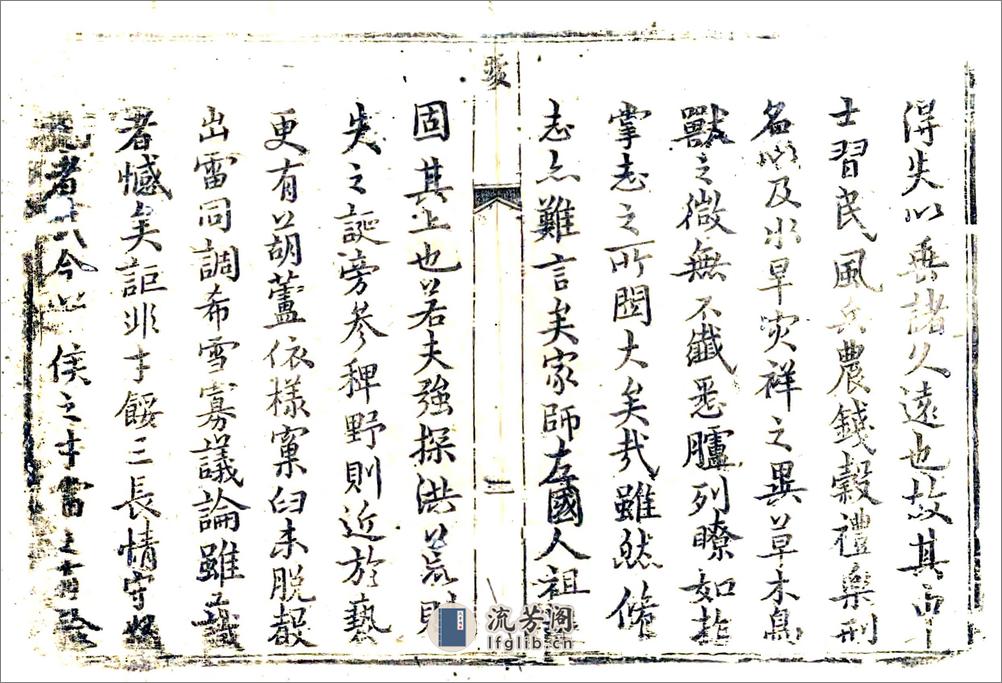 得失以垂諸久遠也故其中
士習民風兵農錢穀禮樂刑
名以及水旱灾祥之異草木鳥
獸之微無不纖悉臚列瞭如指
掌志之所関大矣哉雖然脩
志亦難言矣家師左國人祖
固其上也若夫強探洪荒則
失之誕旁參稗野則近於藝
更有葫蘆依樣窠臼未脫
出雷同調希雪寡議論雖
者憾矣詎非才餒三長情守
者今以侯之才
二
流芳阁
lfglib.cn